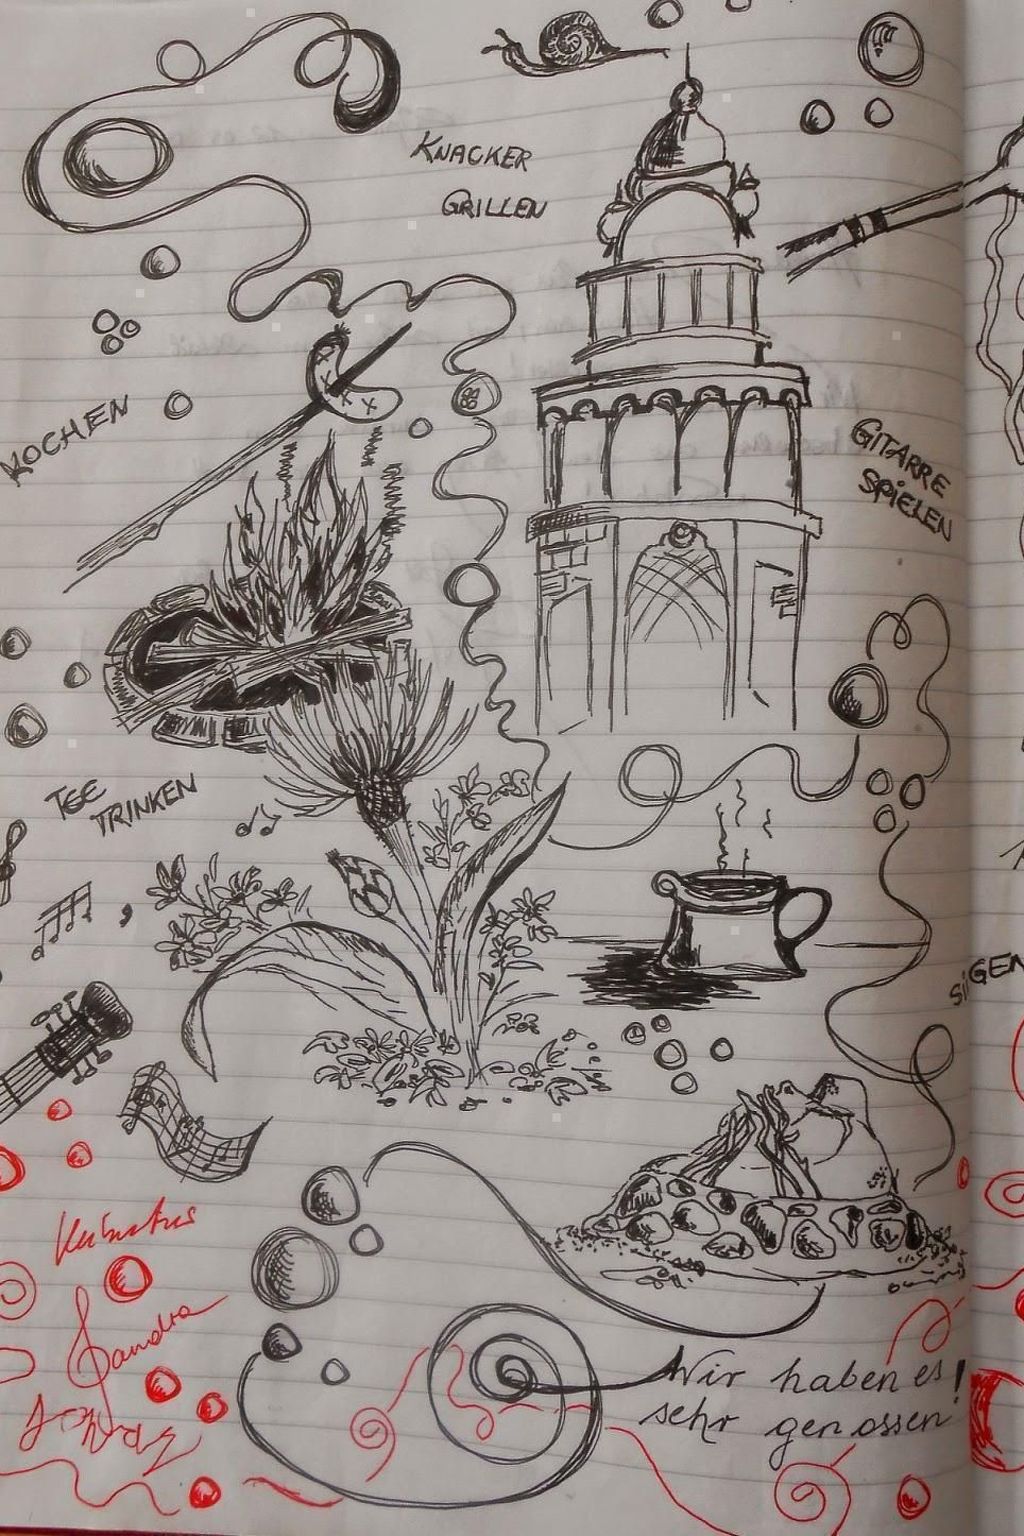 KNACKER
GRILLEN
KOCHEN
GITARRE
SPIELEN
TEE
TRINKEN
SINGEN
Sandra
Wir haben es
sehr genossen!